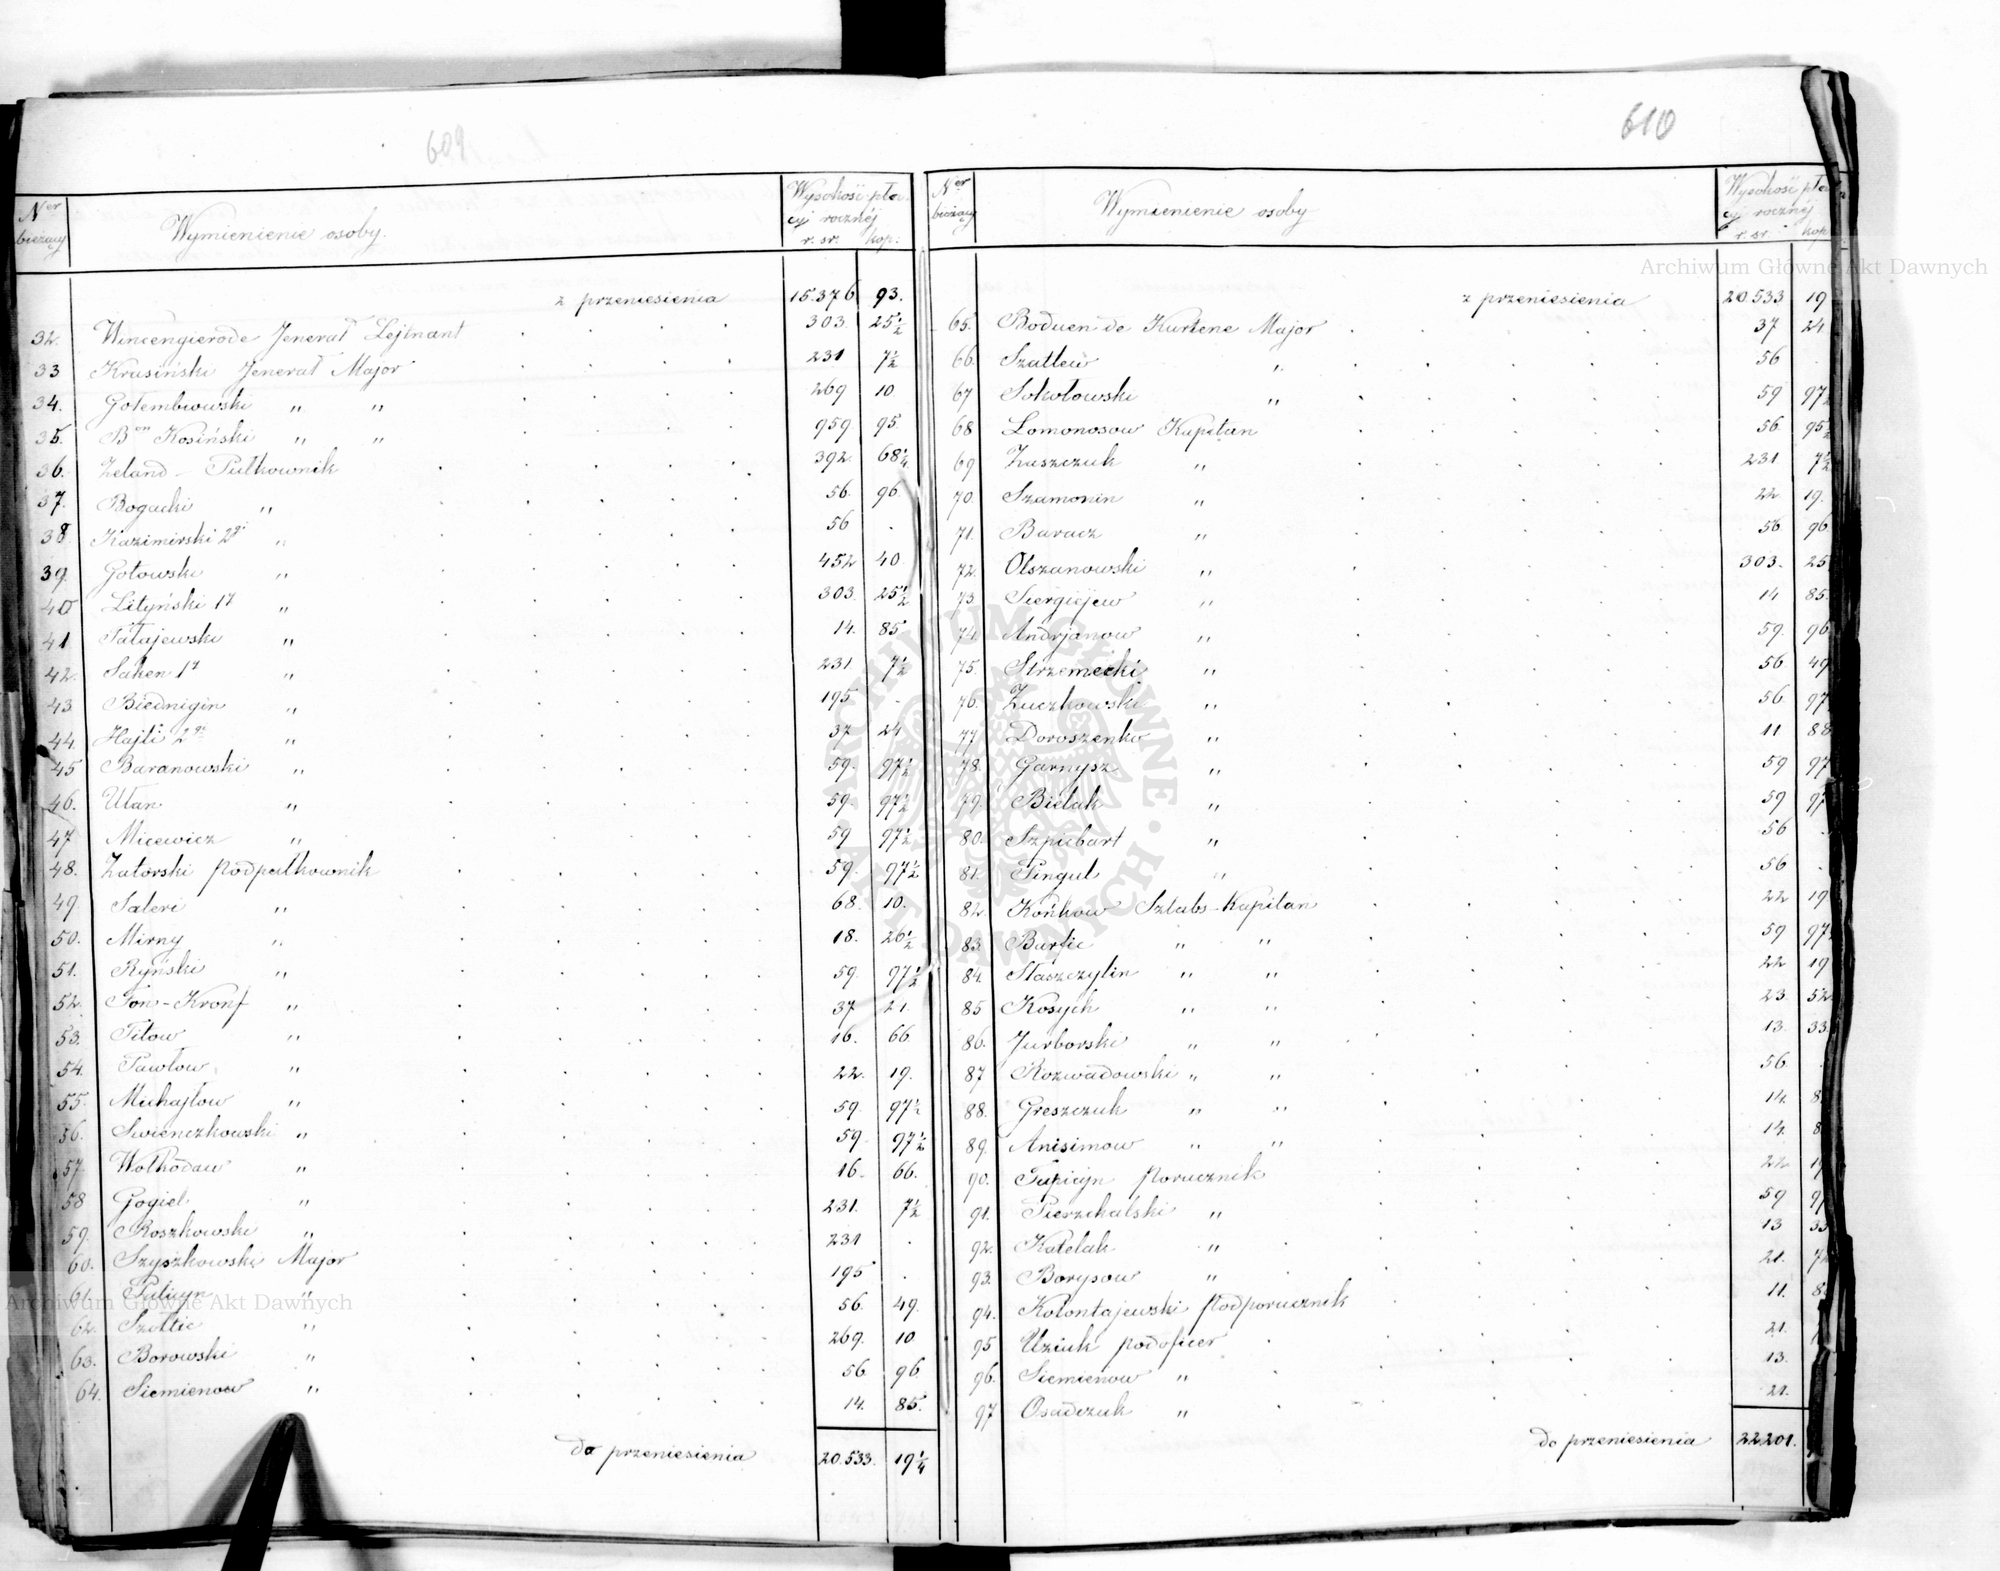 609
Ner bieżący
Wymienienie osoby.
Wysokość płacy rocznéj
r. sr. kop:
z przeniesienia 15.376 93.
32. Wincengierode Jenerał Lejtnant 303. 25½
33 Krasiński Jenerał Major 231 7½
34. Gołembiowski " " 269 10
35. Bon Kosiński " " 959 95.
36. Zeland - Pułkownik 392. 68¼
37. Bogacki " 56. 96.
38 Kazimirski 2gi " 56 .
39. Gotowski " 452 40
40 Lityński 1y " 303. 25½
41 Patajewski " 14. 85
42. Saken 1y " 231 7½
43 Biednigin " 195 .
44. Hajti 2gi " 37 24
45 Baranowski " 59. 97½
46. Ułan " 59. 97½
47 Micewicz " 59 97½
48. Zatorski Podpułkownik 59. 97½
49. Saleri " 68. 10.
50. Mirny " 18. 26½
51. Ryński " 59. 97½
52. Fon-Kronf " 37 21
53. Titow " 16. 66
54. Pawłow " 22. 19.
55. Michajłow " 59. 97½
56. Swienczkowski " 59. 97½
57. Wołkodaw " 16. 66.
58 Gogiel " 231. 7½
59. Roszkowski " 231 .
60. Szyszkowski Major 195 .
61. Palicyn " 56. 49.
62. Szoltic " 269. 10
63. Borowski " 56 96.
64. Siemienow " 14. 85.
do przeniesienia 20.533. 19¼
610
Ner bieżący
Wymienienie osoby
Wysokość płacy rocznéj
r. sr. kop
z przeniesienia 20.533 19
65. Boduen de Kurtene Major 37 24
66. Szatlew " 56 .
67 Sokołowski " 59 97½
68 Lomonosow Kapitan 56. 95½
69 Zaszczuk " 231 7½
70. Szamonin " 22. 19.
71. Baracz " 56 96
72. Olszanowski " 303. 25
73 Siergiejew " 14 85.
74. Andrjanow " 59. 96
75. Strzemecki " 56 49
76. Żuczkowski " 56. 97
77 Doroszenko " 11 88
78. Garnysz " 59 97
79. Bielak " 59 97
80. Szpicbart " 56 .
81. Pingul " 56 .
82. Końkow Sztabs-Kapitan 22 19
83. Burfie " " 59 97
84. Staszczylin " " 22 19
85 Kosych " " 23. 52
86. Jurborski " " 13. 33.
87 Rozwadowski " " 56. .
88. Greszczuk " " 14. 8
89. Anisimow " " 14. 8
90. Tupicyn Porucznik 22 19
91. Pierzchalski " 59 97
92. Katelak " 13 33
93. Borysow " 21. 72
94. Kołontajewski Podporucznik 11. 8
95 Uziuk podoficer 21.
96. Siemienow " 13.
97 Osadczuk " 21.
do przeniesienia 22201.
Archiwum Główne Akt Dawnych
ARCHIWUM GŁÓWNE · AKT DAWNYCH ·
Archiwum Główne Akt Dawnych